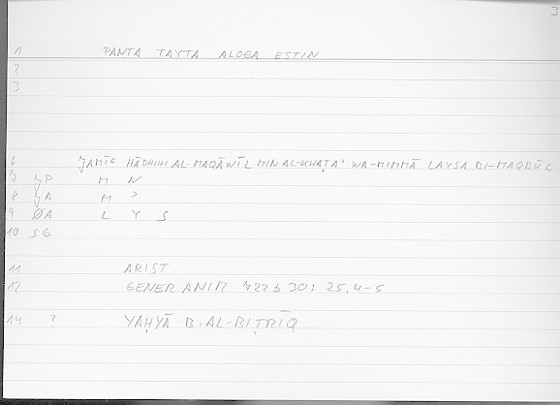 3
1 PANTA TAYTA ALOGA ESTIN
2
3
6 JAMĪʿ HĀDHIHI AL-MAQĀWĪL MIN AL-KHAṬAʾ WA-MIMMĀ LAYSA BI-MAQBŪL
7 M N
8 M ʾ
9 ØA L Y S
10 SG
11 ARIST
12 GENER ANIM 722b30: 25.4-5
14 ? YAḤYĀ B. AL-BIṬRĪQ